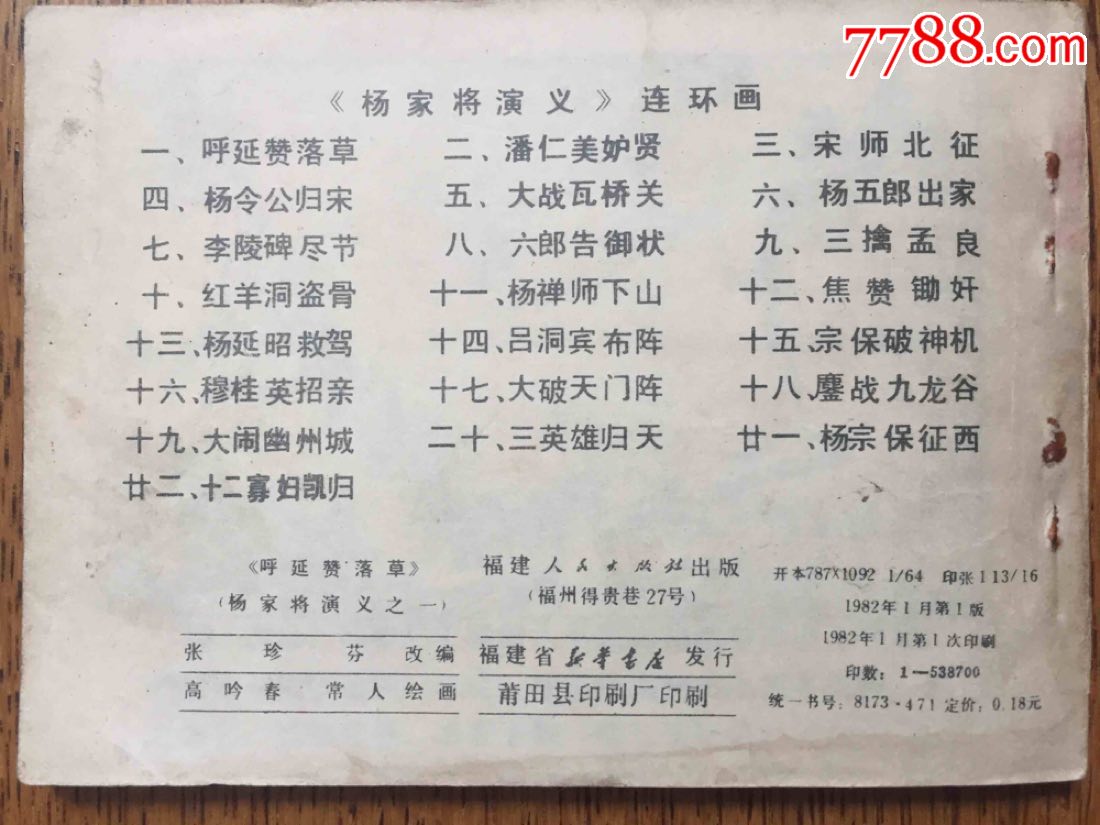 7788.com
《杨家将演义》连环画
一、呼延赞落草 二、潘仁美妒贤 三、宋师北征
四、杨令公归宋 五、大战瓦桥关 六、杨五郎出家
七、李陵碑尽节 八、六郎告御状 九、三擒孟良
十、红羊洞盗骨 十一、杨禅师下山 十二、焦赞锄奸
十三、杨延昭救驾 十四、吕洞宾布阵 十五、宗保破神机
十六、穆桂英招亲 十七、大破天门阵 十八、鏖战九龙谷
十九、大闹幽州城 二十、三英雄归天 廿一、杨宗保征西
廿二、十二寡妇凯归
《呼延赞落草》
(杨家将演义之一)
张珍芬改编
高吟春 常人绘画
福建人民出版社出版
(福州得贵巷27号)
福建省新华书店发行
莆田县印刷厂印刷
开本787×1092 1/64 印张1 13/16
1982年1月第1版
1982年1月第1次印刷
印数：1—538700
统一书号：8173·471 定价：0.18元